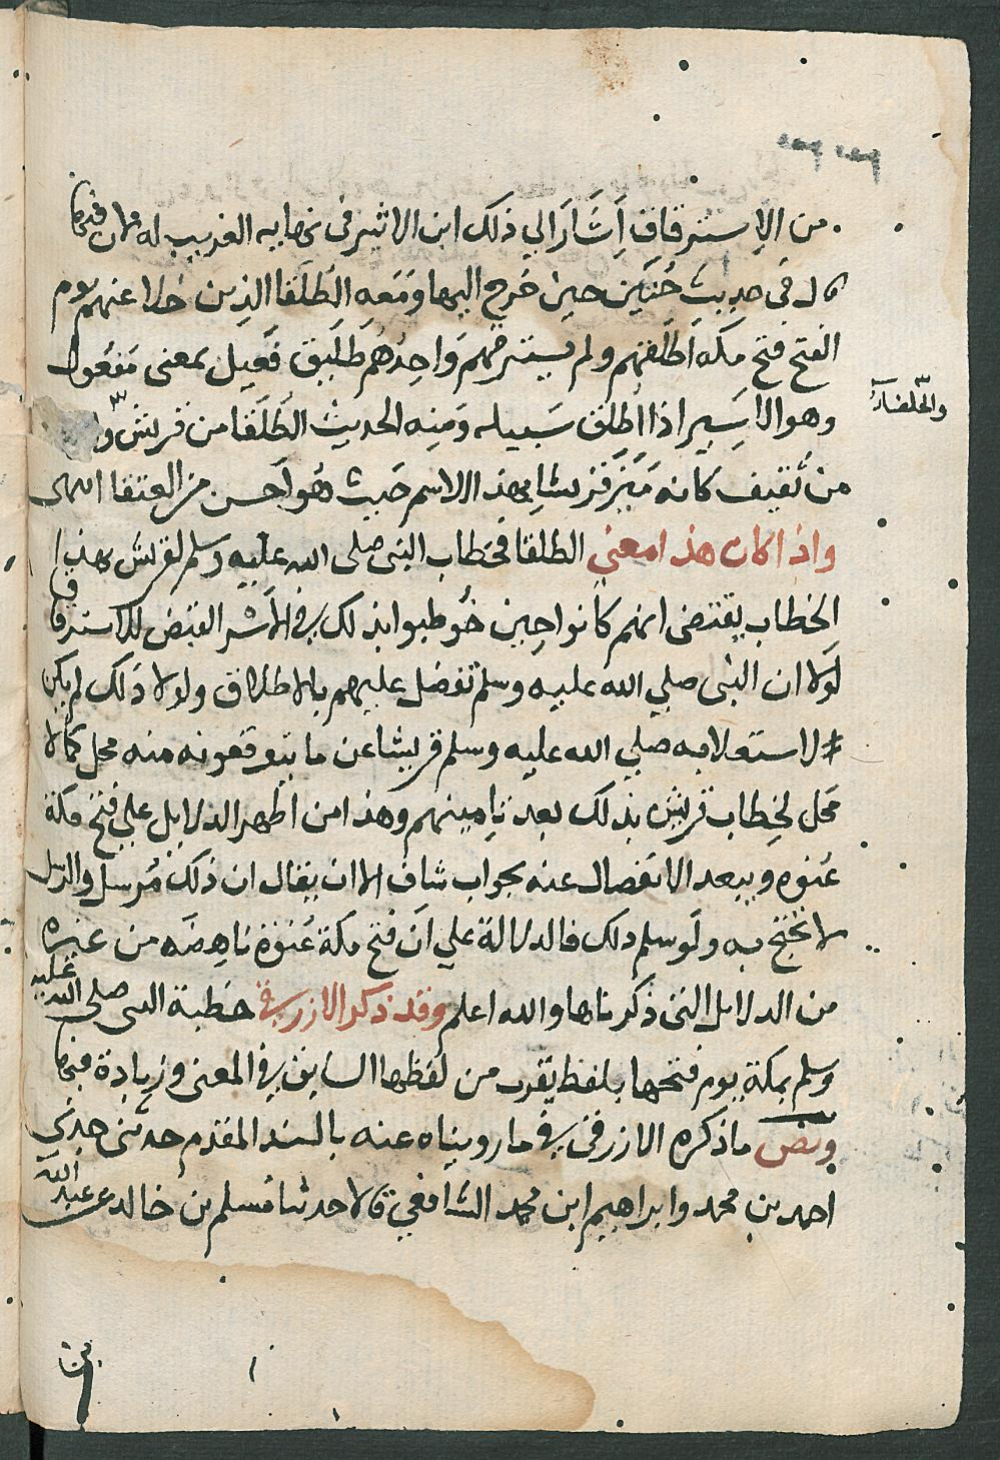 من الاِسترقاقِ اَشَارَ الي ذلك ابن الاثير في نهايه الغريب له لان فيها
قال في حديث حُنَيَن حين خرج اليها وَمَعه الطلَقا الذين خلا عنهم يوم
الفتح فتح مكه اَطلَقهم ولم يسترقهم وَاحِدُهُم طَلَيق فَعِيل بمعنى مَفعُول
وهو الاَسِير اذا اُطلق سَبيله وَمِنه الحديث الطَلَقا من قريش
والعتقاء
من ثَقيف كانه مَيَّز قريشا بهذا الاسم حَيث هُو اَحسن من العتقا انتهى
واذا كان هذا معني الطلقا فخطاب النبى صلى الله عليه وسلم لقريش بهذا
الخطاب يقتضى انهم كانوا حِين خُوطبوا بذلك في الاَسْر المقتض للاسترقاق
لَولا ان النبى صلي الله عليه وسلم تفضل عليهم بالاطلاق ولولا ذلك لم يكن
لاستعلامه صلي الله عليه وسلم قريشا عن ما يتوقعونه منه محل كما لا
مَحل لخِطاب قريش بذلك بعد تاِمينهم وهذا من اظهر الدلايل علي فتح مكة
عُنوه ويبعد الانفصال عنه بجواب شاف الا ان يقال ان ذلك مُرسل والمرسل
لا يُحتج به ولَو سلم ذلك فالدلالة علي اَن فتح مكة عَنوَة ناهِضَه من غيره
من الدلايل التى ذكرناها والله اعلم وقد ذكر الازرقي خطبة النبى صلى الله عليه
وسلم بمكة يوم فتحها بلفظ يقرب من لفظها السابق في المعنى وزيادة فيها
ونص ماذكره الازرقى في ما رويناه عنه بالسند المقدم حدثنى جدى
احمد بن محمد وابراهيم ابن محمد الشافعي قالا حدثنا مُسلم بن خالد عن عبد الله
بن